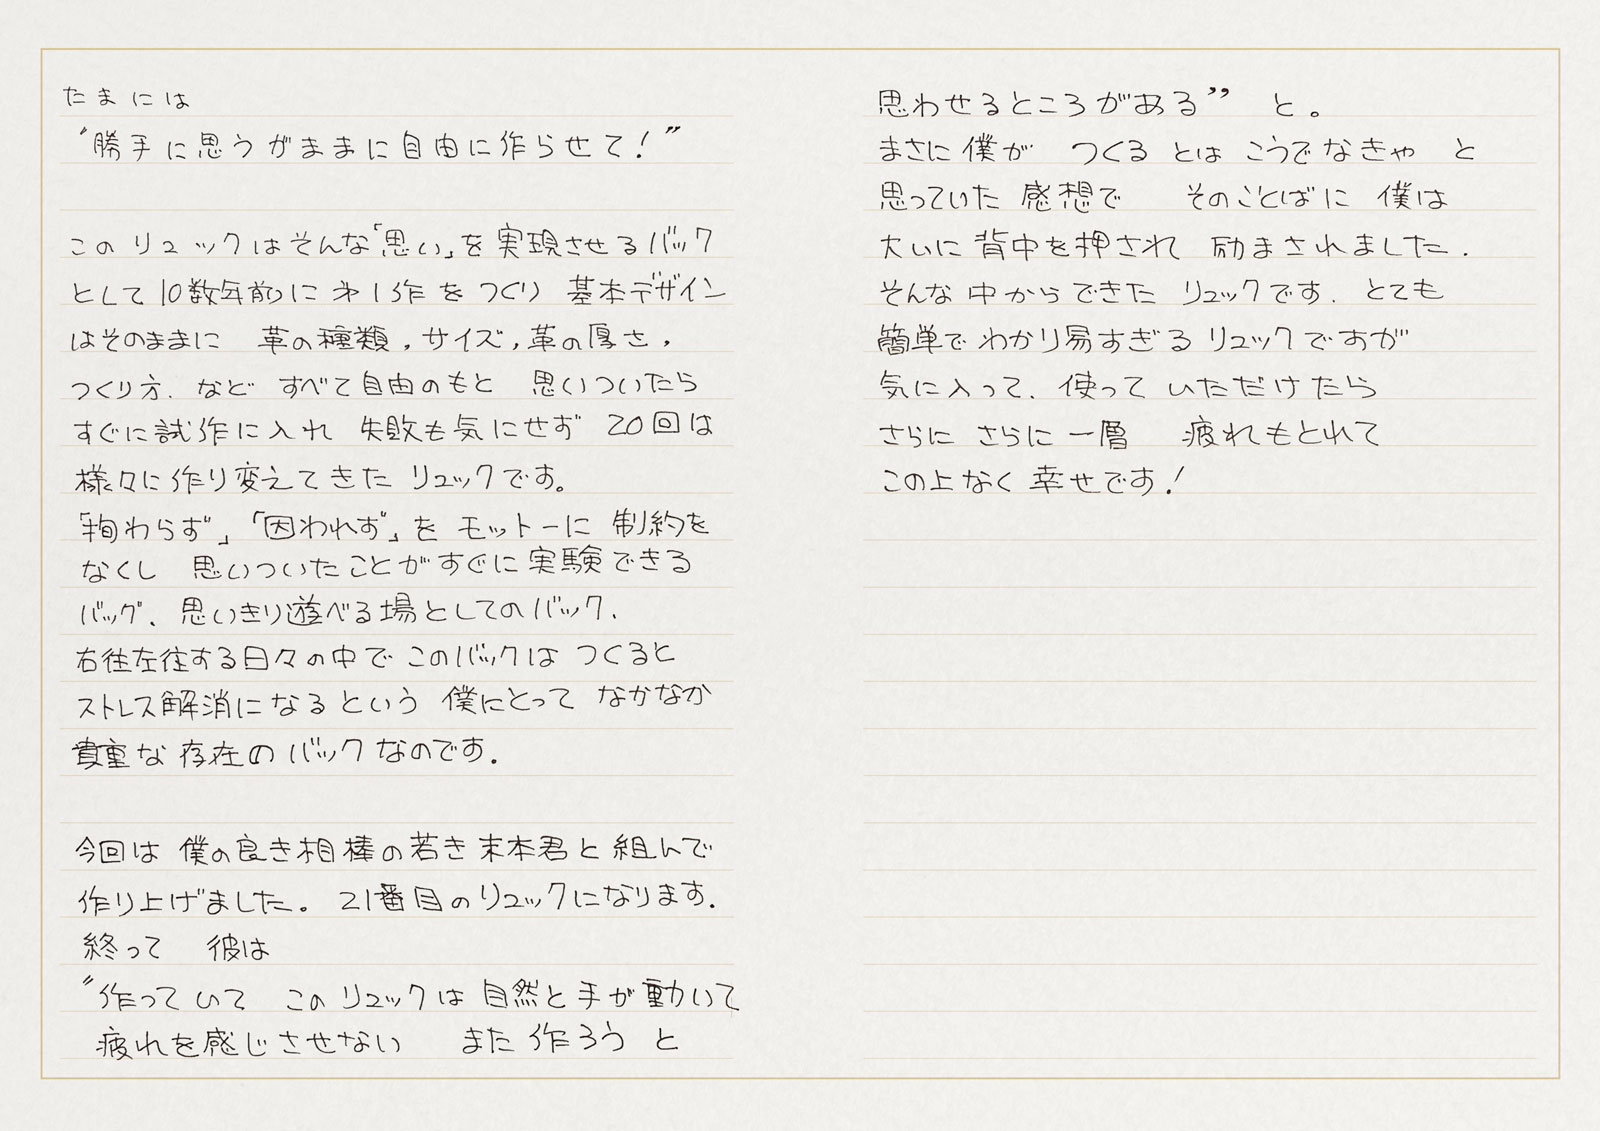 たまには
〝勝手に思うがままに自由に作らせて！〞
このリュックはそんな「思い」を実現させるバック
として10数年前に才1作をつくり 基本デザイン
はそのままに 革の種類，サイズ，革の厚さ，
つくり方．など すべて自由のもと 思いついたら
すぐに試作に入れ 失敗も気にせず 20回は
様々に作り変えてきた リュックです。
「拘わらず」「因われず」を モットーに 制約を
なくし 思いついたことがすぐに実験できる
バッグ．思いきり遊べる場としてのバック．
右往左往する日々の中で このバックは つくると
ストレス解消になるという 僕にとって なかなか
貴重な存在のバックなのです．
今回は 僕の良き相棒の若き末本君と組んで
作り上げました。21番目のリュックになります．
終って 彼は
〝作っていて このリュックは自然と手が動いて
疲れを感じさせない また作ろう と
思わせるところがある” と。
まさに僕が つくる とは こうでなきゃ と
思っていた 感想で そのことばに 僕は
大いに背中を押され 励まされました．
そんな中からできた リュックです．とても
簡単でわかり易すぎるリュックですが
気に入って．使って いただけたら
さらに さらに 一層 疲れもとれて
この上なく幸せです！